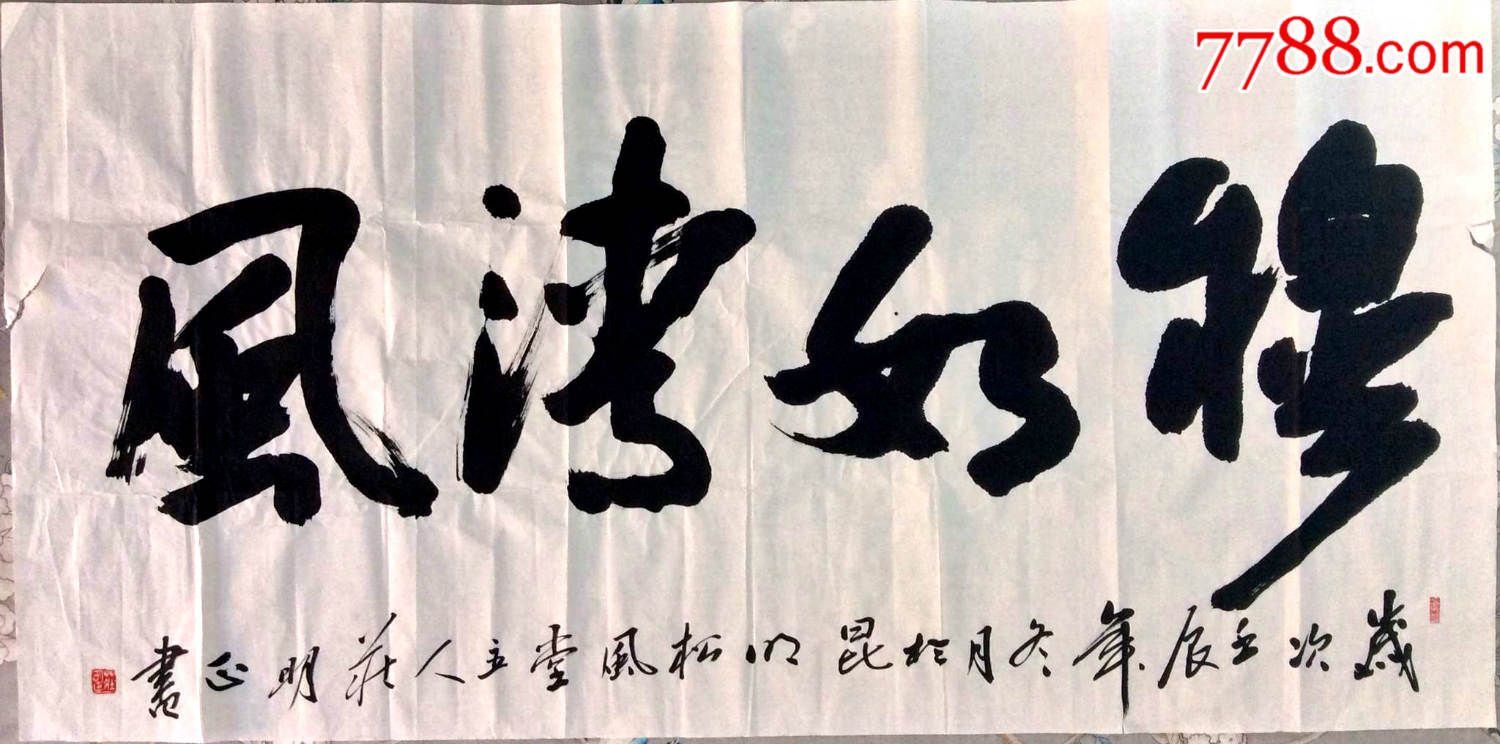 7788.com
穆如清風
歲次壬辰年冬月於昆明松風堂主人莊明正書